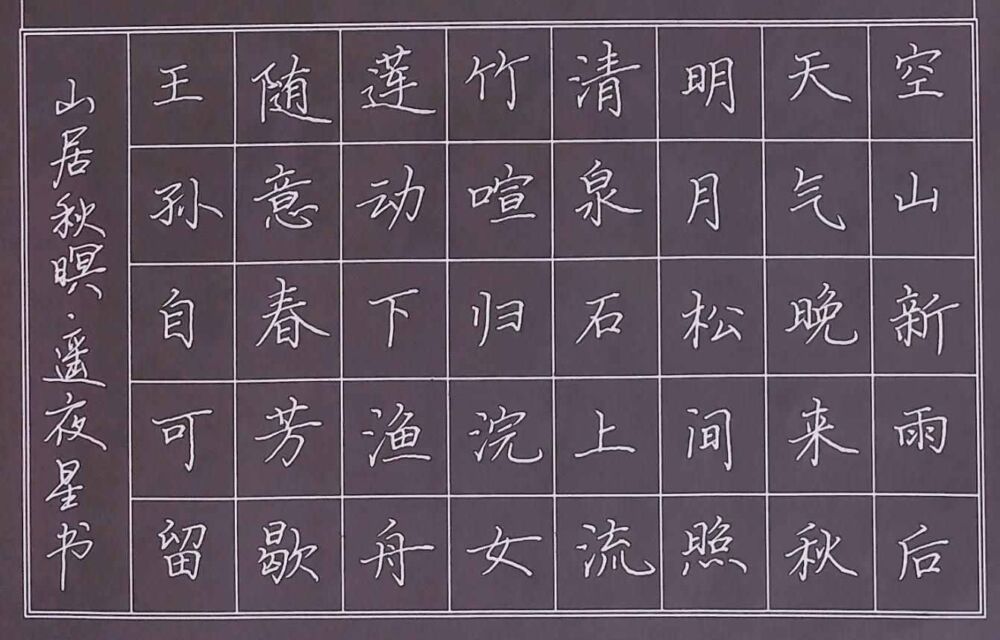 空山新雨后
天气晚来秋
明月松间照
清泉石上流
竹喧归浣女
莲动下渔舟
随意春芳歇
王孙自可留
山居秋暝·遥夜星书